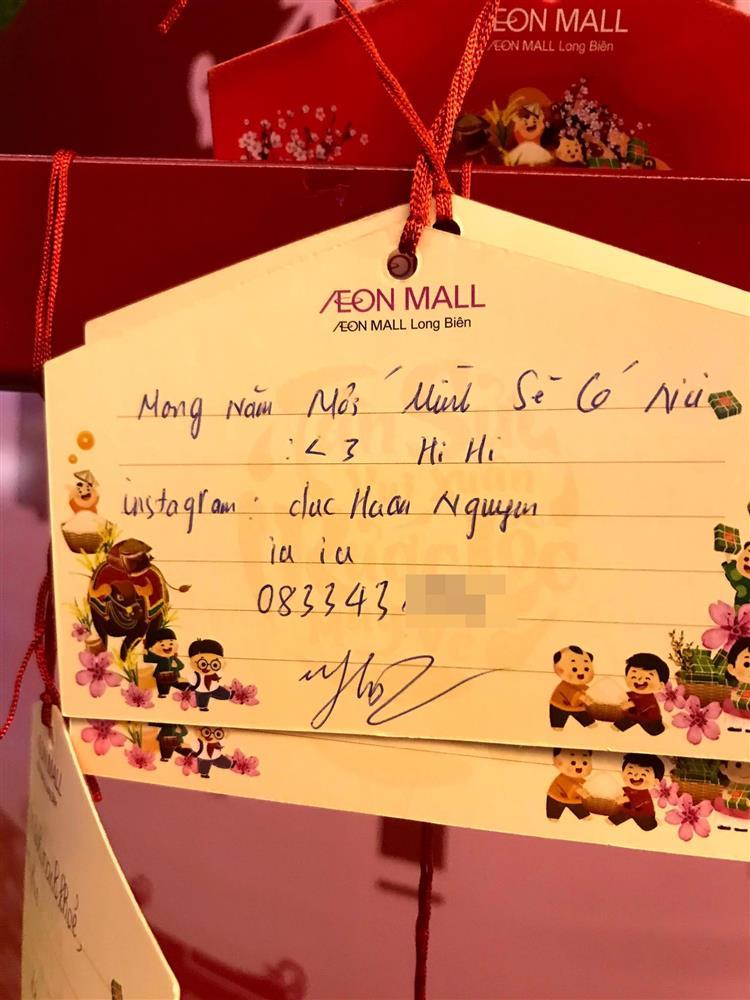 ÆON MALL
ÆON MALL Long Biên
ÆON MALL
ÆON MALL Long Biên
Mong Năm Mới Mình Sẽ Có
:<3 Hi Hi
instagram: Nguyen
iu iu
083343
ÆON MALL